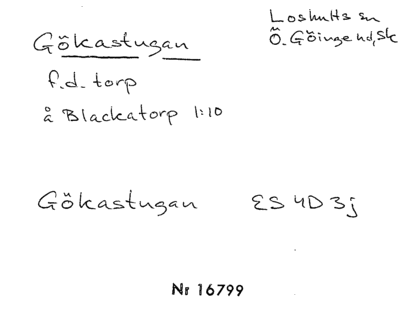 Gökastugan
Loshults sn
Ö. Göinge hd, Sk
f.d. torp
å Blackatorp 1:10
Gökastugan ES 4D 3j
Nr 16799